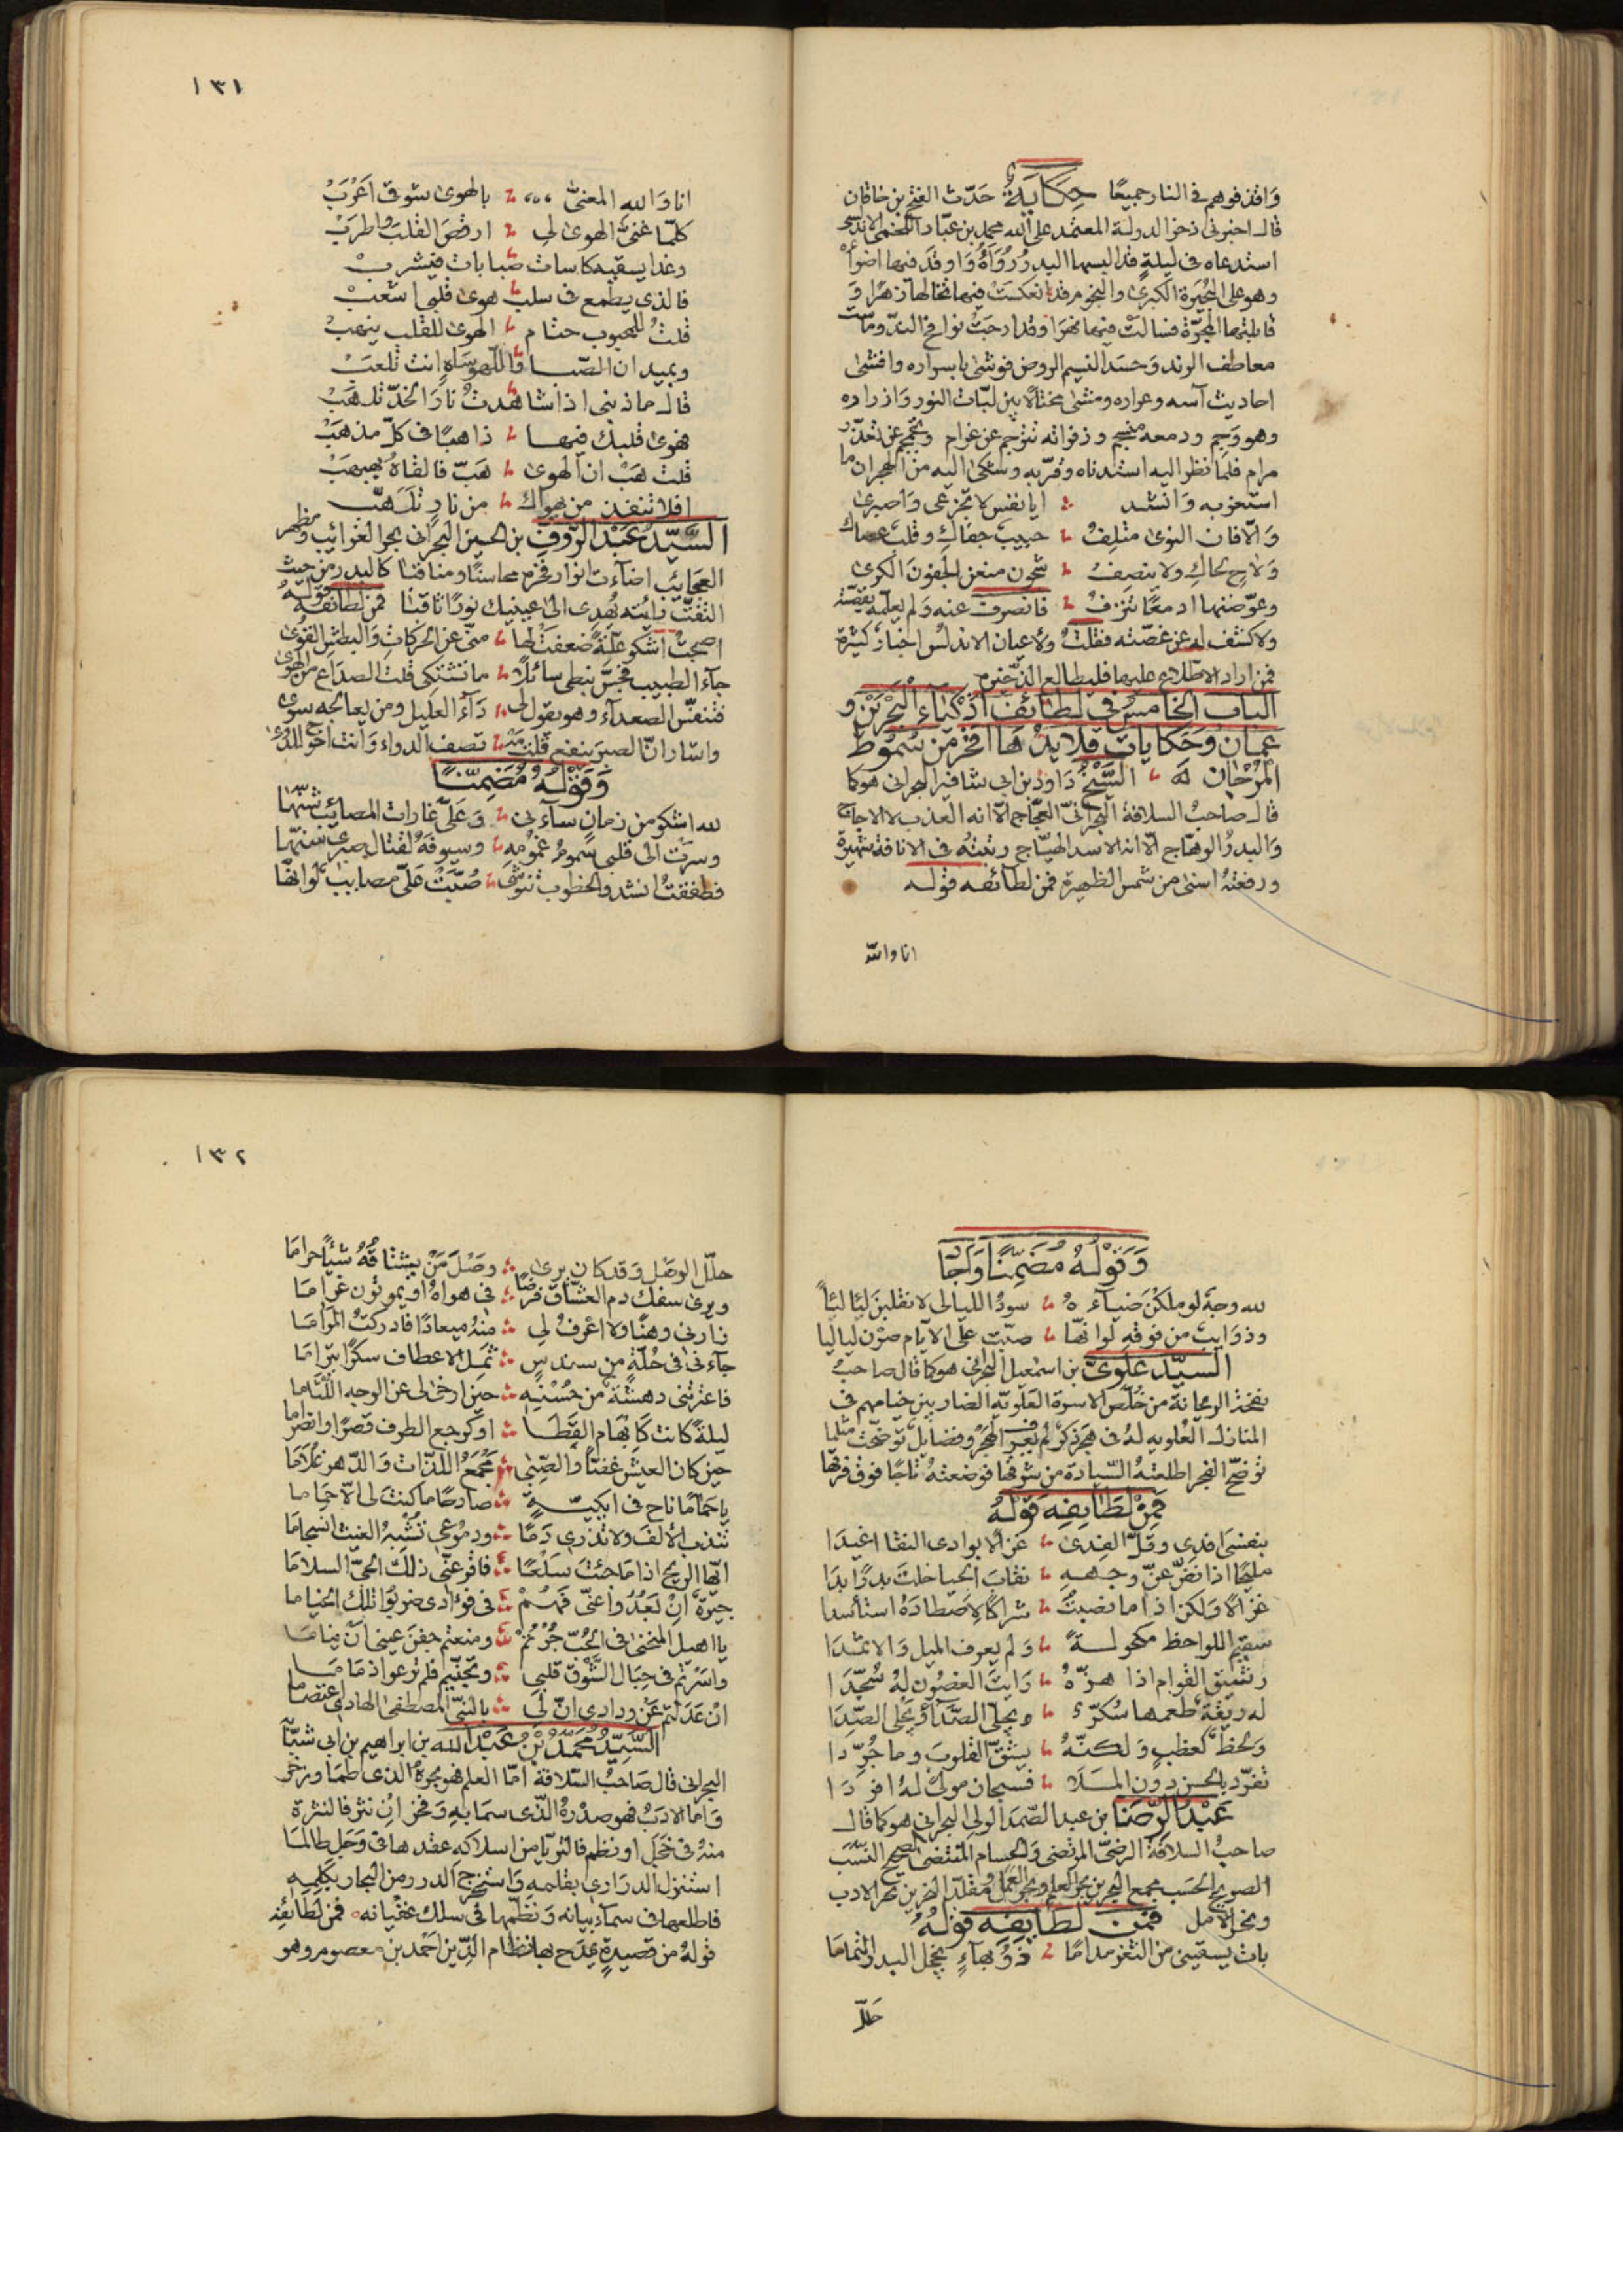 وَاقذفوهم في النار جميعًا حِكَايَةٌ حَدّث الفتح بن خاقان
قال اخبرني ذخر الدولة المعتمد على الله محمد بن عبّاد اللخمي الاندلسي
استدعاه في ليلةٍ قد البسها البدرُ رُوَآءَهُ وَاوقدَ فيها اضواءَهُ
وهو على البُحَيرة الكبرى والنجوم قد انعكست فيها تخالها زهرًا وَ
قابلتها المجرّة فسالت فيها نهرًا وقد ارجَتْ نوافح الندّ ومالت
معاطف الرند وَحسَد النسيم الروض فوشى باسراره وافشى
احاديث آسه وعراره ومشى مختالًا بين لبّات النور وَازراره
وهو وَجِم ودمعه منسجم وزفراته تترجم عن غرام وتجمجم عن تعذّر
مرام فلمّا نظر اليه استدناه وقرّبه وشكى اليه من الهجران ما
استغربه وَانشد ايا نفس لا تجزعي وَاصبري
وَالّا فان النوى متلِفُ حبيب جفاكِ وقلب عصاك
وَلاحٍ لحاكِ ولا ينصِفُ شجون منعن الجفونَ الكرى
وعوّضنها ادمعًا تنزِفُ فانصرفت عنه وَلم يعلمه بقصّته
ولا كشف له عن غصّته فقلتُ ولاعيان الاندلس اخبارٌ كثيرة
فمن اراد الاطّلاع عليها فليطالع الذخيره
الباب الخامسُ في لطائف اذكياءِ البَحْرَيْن و
عمان وَحكايات قلايدُها افخر من سُمُوط
المَرْجان لَه الشَّيْخُ دَاوُد بن ابي شافيز البحراني هو كما
قال صاحبُ السلافة البحرانيّ العجّاج الّا انه العذب لا الاجاج
وَالبدرُ الوهّاج الّا انه الاسد الهيّاج رتبتُه في الانافة شهيرة
ورفعتهُ اسنى من شمس الظهيرة فمن لطائفه قوله
انا والله
١٣١
انا وَالله المعنّى بالهوى شوقي اَعْرَبْ
كلّما غنّى الهوى لي ارقصَ القلبَ واطرَبْ
وغدا يسقيه كاسات صَبابات فيشربْ
فالذي يطمع في سلب هوى قلبي اشعبْ
قلتُ للمحبوب حتّام الهوى للقلب ينهبْ
وبميدان الصّبا وَاللهو سَاهٍ انت تلعبْ
قال ما ذنبي اذا شاهدتْ نارَ الخدّ تلهبْ
فهوى قلبك فيها ذاهبًا في كلّ مذهبْ
قلت هَبْ ان الهوى هَبّ فالقاهُ بهبهبْ
افلا تنقذ من يهواك من نارٍ تلهّبْ
السَّيِّدُ عَبْد الرَّووف بن الحسين البحراني بحر الغرائب ومظهر
العجايب اضاءت انوار فخره محاسنًا ومناقبا كالبدر من حيث
التفتّ رايته يُهدي الى عينيك نورًا ثاقبا فمن لطائفه قولُهُ
اصبحتُ اشكو علّةً ضعفت لها منّي عن الحركاتِ وَالبطشِ القُوى
جآء الطبيب فجسّ نبضي سائلًا مما تشتكي قلت الصداع من الهوى
فتنفّس الصعدآء وهو يقول لي دَآءُ العليل ومن يعالجه سوى
واشار انّ الصبر ينفع قلت مَه تصف الدواء وَانت احوج للدوا
وَقَوْلُهُ مُضَمِّنًا
لله اشكو من زمانٍ سآءني وَعَليّ غارات المصائب شنّها
وسَرَتْ الى قلبي سموم غمومه وسيوفه لقتال صبري سَنّها
فطفقتُ انشد والخطوب تنوشني صُبّتْ عليّ مصايب لو انّها
وَقَوْلُهُ مُضَمِّنًا وَاَجَادَ
لله وجهٌ لو ملكن ضيآءَه سودُ الليالي لانقلبنَ لياليًا
وذوَايب من فوقه لو انّها صبّت على الايّام صِرْن لياليا
السيّد عَلَويّ بن اسمعيل البحراني هو كما قال صاحبُ
نفحة الريحانة من خُلّص الاسوة العَلَويّة الضاربين خيامهم في
المنازل العُلويه لهُ في هجر ذكرٌ لم يعبر الهُجْر وفضايل توضّحت مثلما
توضّح الفجر اطلعتهُ السّيادة من شوقها فوضعتهُ تاجًا فوق فرقها
فَمِنْ لَطَايِفِهِ قَوْلُهُ
بنفسي افدي وقلّ الفِدى غزالًا بوادي النقا اغيَدا
مليحًا اذا فضّ عن وجهه نقابَ الحيا خلتَ بدرًا بدا
غزالًا وَلكن اذا ما نصبتُ شراكًا لاصطادَهُ استأسدا
سقيم اللواحظ مكحولةً وَلم يعرف الميل وَالاثمدَا
رشيق القوام اذا هزّهُ رَايتَ الغصُون لهُ سُجّدَا
له ريقةٌ طعمها سُكّرٌ يُجلّي الصّدَا وَيُجلي الصّدَا
وَلحظٌ كعَضبٍ وَلكنّهُ يشقّ القلوبَ وما جُرِّدا
تفرّد بالحسن دون المَلَا فسبحان مولًى لهُ افرَدَا
عَبْدُ الرِّضَا بن عبد الصّمد الولي البحراني هو كما قال
صاحبُ السلافة الرضيّ المرتضى وَالحسام المنتضى الصحيح النسَب
الصريح الحسَب مجمع البحرين بحر العلم وبحر العمل ومقلّد النحرين نحر الادب
ونحر الامل فَمِن لَطَايِفِهِ قولُهُ
بات يسقيني من الثغر مدامًا ذُو بهآءٍ يخجل البدر التماما
حَلّل
١٣٢
حلّل الوصْل وَقد كان يرى وصْلَ مَنْ يشتاقُهُ شيئًا حراما
ويرى سفك دم العشّاق فرضًا في هواهُ او يموتون غراما
زارني وهنًا ولا اعرفُ لي منهُ ميعادًا فادركتُ المَرَاما
جآءني في حُلّةٍ من سندسٍ ثمل الاعطاف سكرًا يترامى
فاعترتني دهشةٌ من حُسْنِه حين ارخى لي عن الوجه اللثاما
ليلةً كانت كابهام القَطَا او كرجع الطرف قصرًا وانصراما
حين كان العيش غضًّا والصِّبى مَجْمَعُ اللذّات وَالدّهر غلامَا
يا حَمَامًا ناح في ايكيّةٍ صادحًا ما كنتَ لي الّا حِمَاما
تندب الالف ولا تذري دَمًا ودمُوعي تُشْبِهُ الغيث انسجامَا
ايّها الريح اذا مَا جئتَ سَلْعًا فاقرِ عنّي ذلكَ الحيَّ السلامَا
جيرَةٌ انْ بَعُدُوا عنّي فهُمْ في فوءادي ضربُوا تلكَ الخياما
يا اهيل المنحنى في الحُبّ جُرْتمْ ومنعتم جفنَ عيني اَنْ ينامَا
وَاسَرْتم في حِبَال الشّوق قلبي وتجنّيتم فلم ترعوا ذمَامَا
انْ عَدَلتم عَنْ ودادي انّ لي بالنبيّ المصطفى الهادي اعتصاما
السَّيِّدُ مُحَمّدُ بْنُ عَبْد الله بن ابراهيم بن ابي شبّانَة
البحراني قال صَاحبُ السّلافة امّا العلم فهو بحرهُ الذي طما وزخر
وَاما الادبُ فهو صدرُهُ الذّي سمَا بهِ وَفخر اِن نثر فالنثرة
منهُ في خجَل او نظم فالثريّا من اسلاكهِ عقدها في وَجَل طالمَا
استنزل الدرَاري بقلمهِ وَاستخرج الدررمن البحار بكلِمهِ
فاطلعها في سمآء بيانه وَنظّمها في سلك عقيانه فمن لطَائفِه
قولهُ من قصيدةٍ يمدَح بها نظام الدِّين احمد بن معصوم وهو